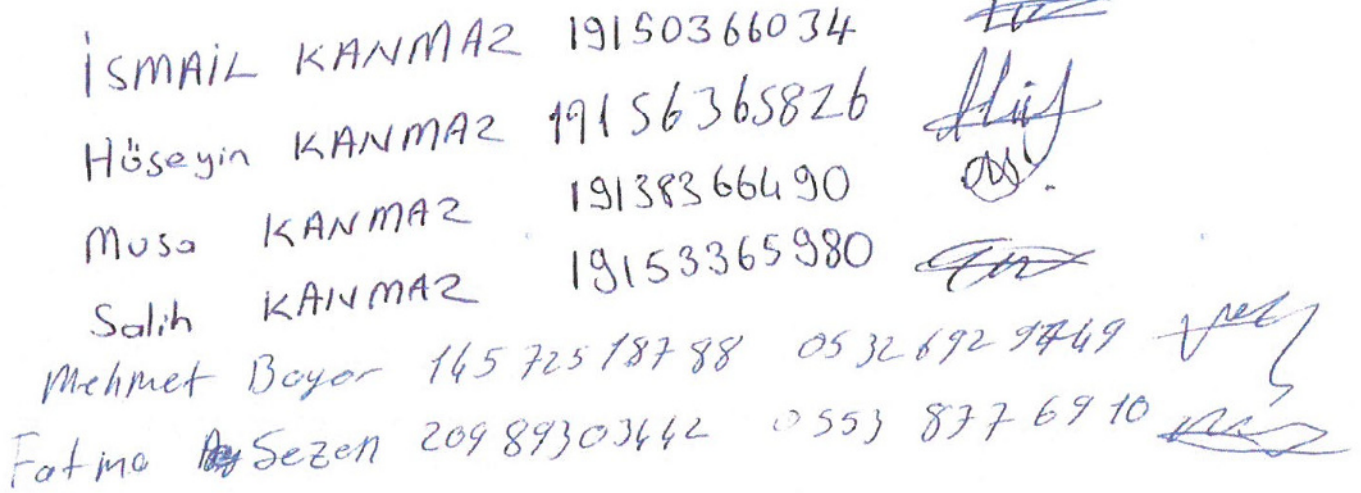 İSMAİL KANMAZ 19150366034
Hüseyin KANMAZ 19156365826
Musa KANMAZ 19138366490
Salih KANMAZ 19153365980
Mehmet Bayar 14572518788 0532 692
Fatma Sezen 20989303442 0553 877 6910